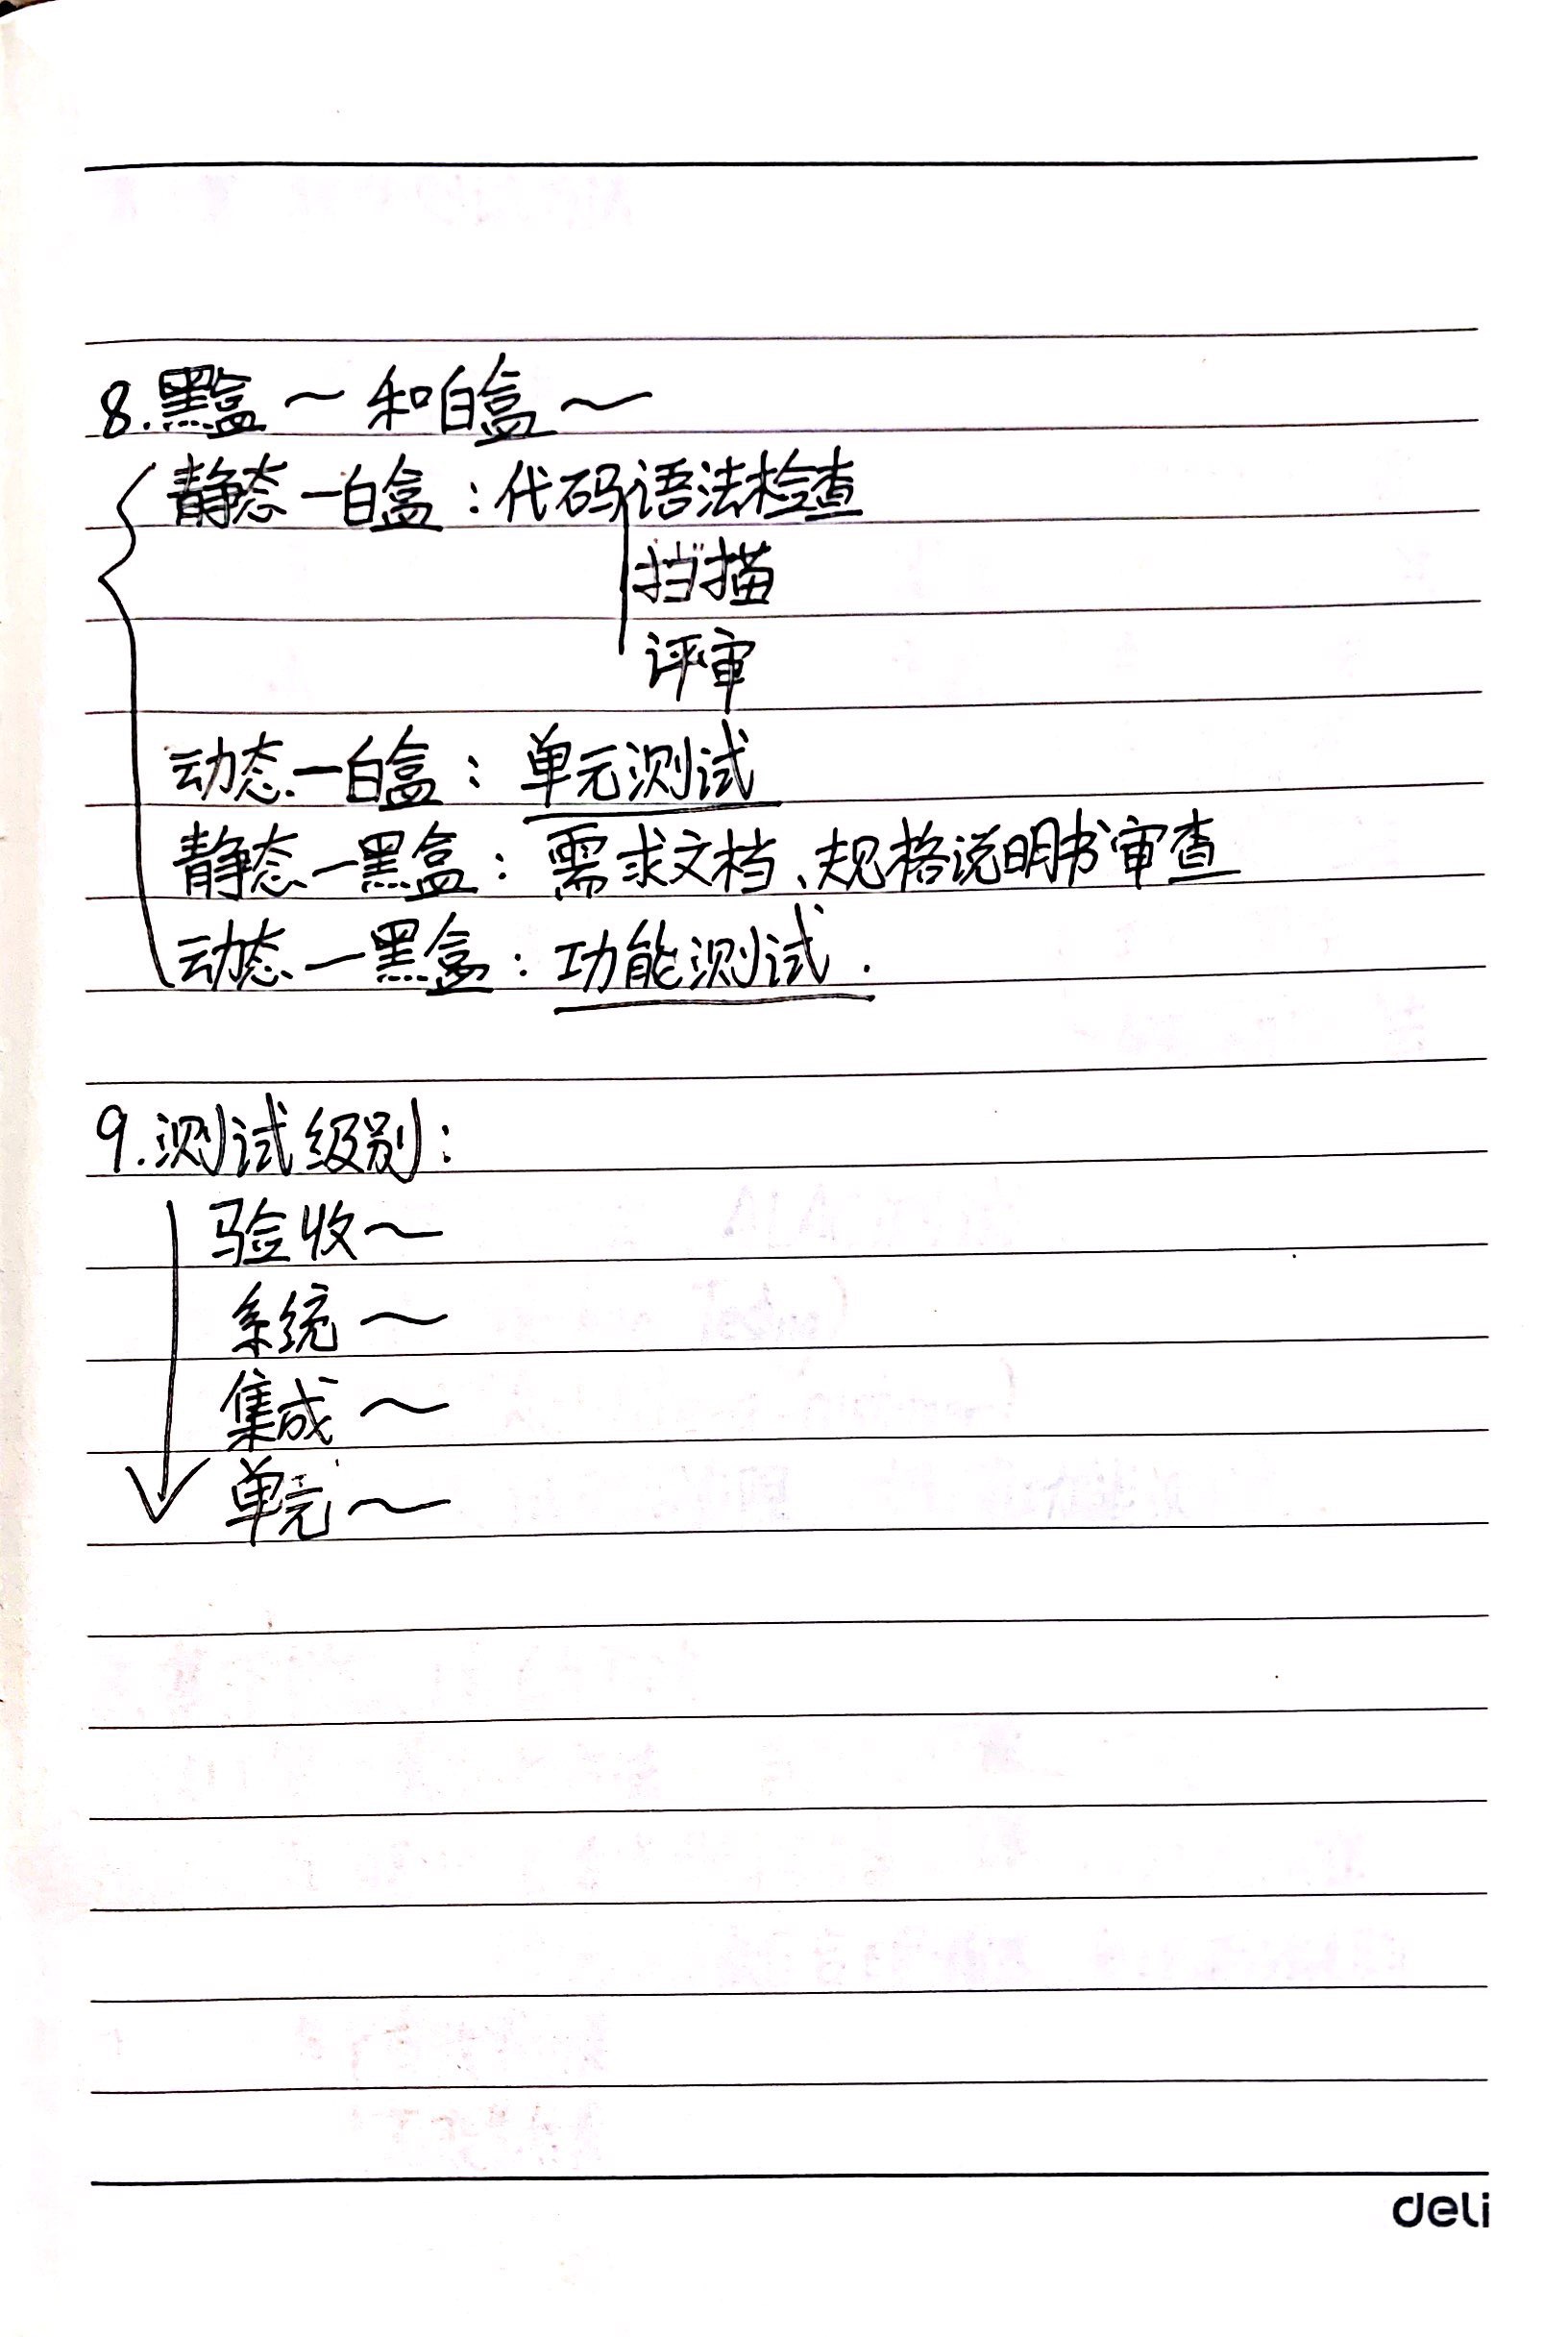 8.黑盒～和白盒～
静态—白盒：代码语法检查
挡描
评审
动态—白盒：单元测试
静态—黑盒：需求文档、规格说明书审查
动态—黑盒：功能测试.
9.测试级别：
验收～
系统～
集成～
单元～
deli